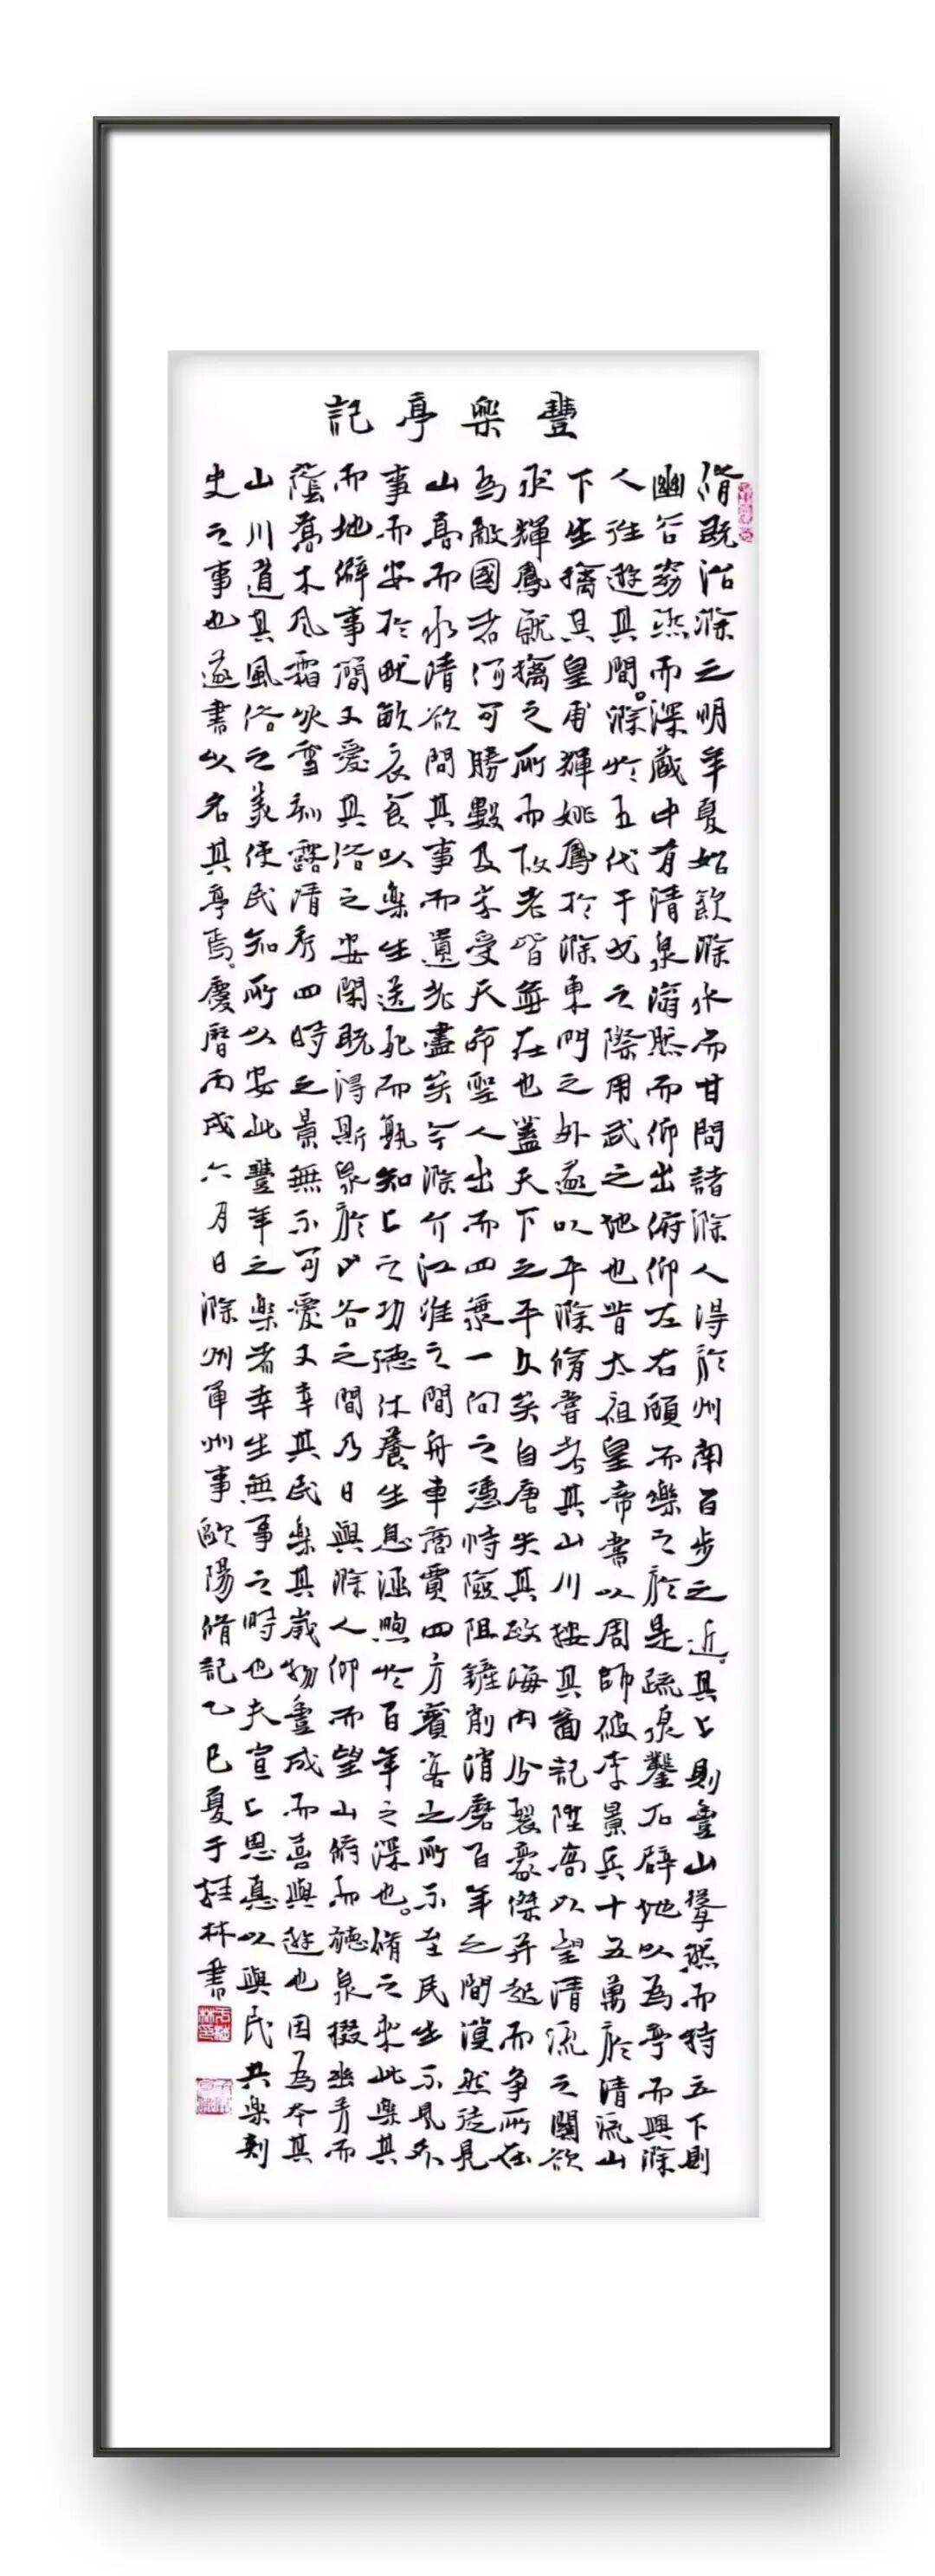 豐樂亭記
脩既治滁之明年夏始飲滁水而甘問諸滁人得於州南百步之近。其上則豐山聳然而特立下則
幽谷窈然而深藏中有清泉滃然而仰出俯仰左右顧而樂之於是疏泉鑿石辟地以為亭而與滁
人往遊其間。滁於五代干戈之際用武之地也昔太祖皇帝嘗以周師破李景兵十五萬於清流山
下生擒其皇甫輝姚鳳於滁東門之外遂以平滁脩嘗考其山川按其圖記陞高以望清流之關欲
求輝鳳就擒之所而故老皆無在也蓋天下之平久矣自唐失其政海內分裂豪傑并起而爭所在
為敵國者何可勝數及宋受天命聖人出而四海一向之憑恃險阻鏟削消磨百年之間漠然徒見
山高而水清欲問其事而遺老盡矣今滁介江淮之間舟車商賈四方賓客之所不至民生不見外
事而安於畎畝衣食以樂生送死而孰知上之功德休養生息涵煦於百年之深也。脩之來此樂其
而地僻事簡又愛其俗之安閑既得斯泉於山谷之間乃日與滁人仰而望山俯而聽泉掇幽芳而
蔭喬木風霜冰雪刻露清秀四時之景無不可愛又幸其民樂其歲物豐成而喜與遊也因為本其
山川道其風俗之美使民知所以安此豐年之樂者幸生無事之時也夫宣上恩惪以與民共樂刺
史之事也遂書以名其亭焉。慶曆丙戌六月日滁州軍州事歐陽脩記乙巳夏于桂林書